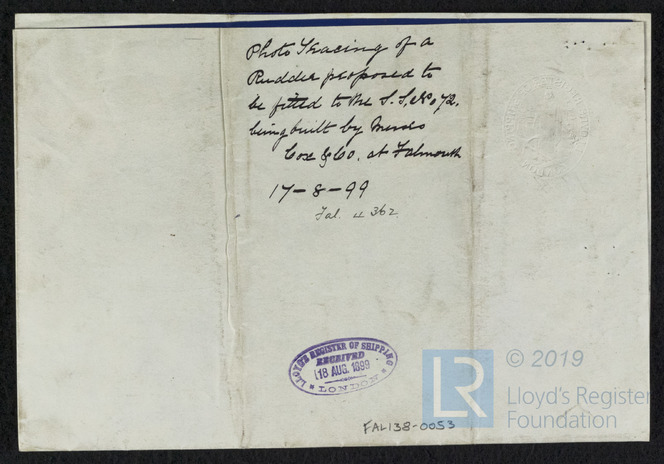 Photo Tracing of a
Rudder proposed to
be fitted to the S.S. No 72.
being built by Messrs
Cox & Co. at Falmouth
17-8-99
Fal. 4362
LLOYD'S REGISTER OF SHIPPING
RECEIVED
18 AUG. 1899
LONDON
LR
© 2019
Lloyd's Register
Foundation
FAL138-0053